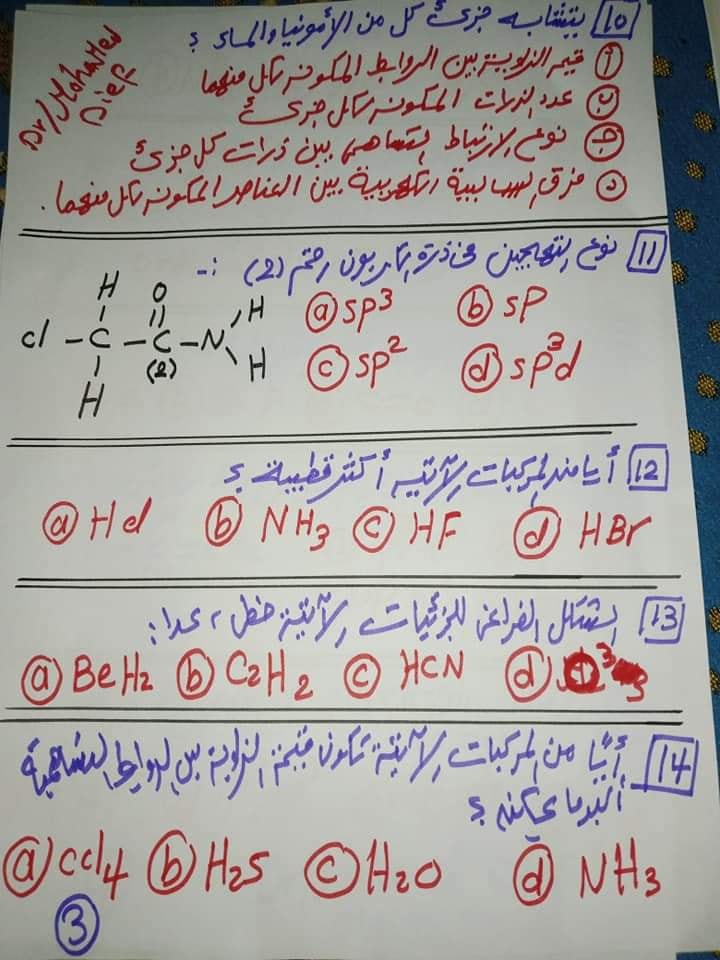 10 يتشابه جزئ كل من الأمونيا والماء ؟
Dr/Mohamed Diep
أ قيم الزاوية بين الروابط المكونه لكل منهما
ب عدد الذرات المكونه لكل جزئ
ج نوع الارتباط التساهمى بين ذرات كل جزئ
د فرق السالبية الكهربية بين العناصر المكونه لكل منهما .
11 نوع التهجين فى ذرة الكربون رقم (2) :-
a sp3 b sp
c sp2 d sp3d
H O H
Cl - C - C - N
(2) H
H
12 أيا من المركبات الآتيه أكثر قطبية ؟
a Hcl b NH3 c HF d HBr
13 الشكل الفراغى للجزئيات الآتية خطى ، عدا :
a BeH2 b C2H2 c HCN d
14 أيًا من المركبات الآتية تكون قيمة الزاوية بين الروابط التساهمية
أكبر ما يمكن ؟
a CCl4 b H2S c H2O d NH3
3